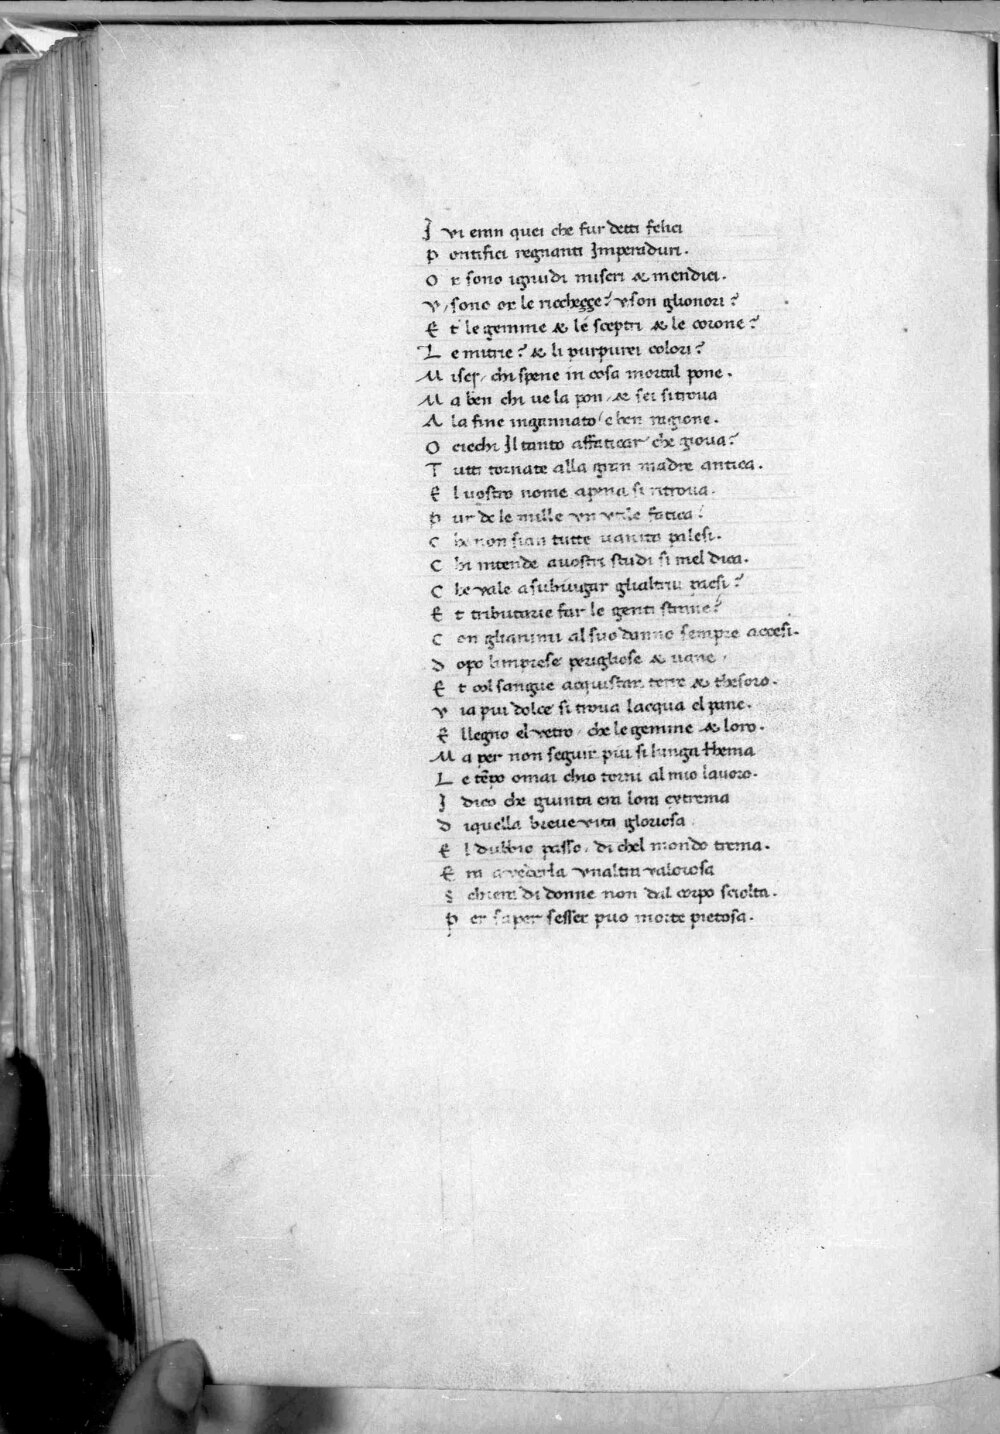 I vi eran quei che fur detti felici
P ontifici regnanti Imperaduri.
O r sono ignudi miseri & mendici.
V / sono or le ricchecçe? vson glionori?
E t le gemme & le sceptri & le corone?
L e mitrie? & li purpurei colori?
M iser / chi spene in cosa mortal pone.
M a ben chi ue la pon / & sei si troua
A la fine ingannato / e ben ragione.
O ciechi Il tanto affaticar che gioua?
T utti tornate alla gran madre antica.
E l uostro nome apena si ritroua.
P ur de le mille vn vtile fatica?
C he non sian tutte uanita palesi.
C hi intende auostri studi si mel dica.
C he vale a subiugar glialtrui paesi?
E t tributarie far le genti strane?
C on glianimi al suo danno sempre accesi.
D opo limprese perigliose & uane /
E t col sangue acquistar terre & thesoro.
V ia piu dolce si troua lacqua el pane.
E llegno el vetro / che le gemme & loro.
M a per non seguir piu si lunga thema
L e tēpo omai chio torni al mio lauoro.
I dico che giunta era lora extrema
D iquella breue vita gloriosa
E l dubbio passo / di chel mondo trema.
E ra a vederla vnaltra valorosa
S chiera di donne non dal corpo sciolta.
P er saper sesser puo morte pietosa.